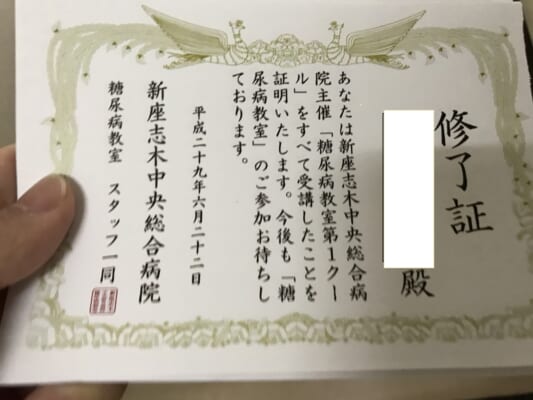 修了証
殿
あなたは新座志木中央総合病
院主催「糖尿病教室第1クー
ル」をすべて受講したことを
証明いたします。今後も「糖
尿病教室」のご参加お待ちし
ております。
平成二十九年六月二十二日
新座志木中央総合病院
糖尿病教室　スタッフ一同